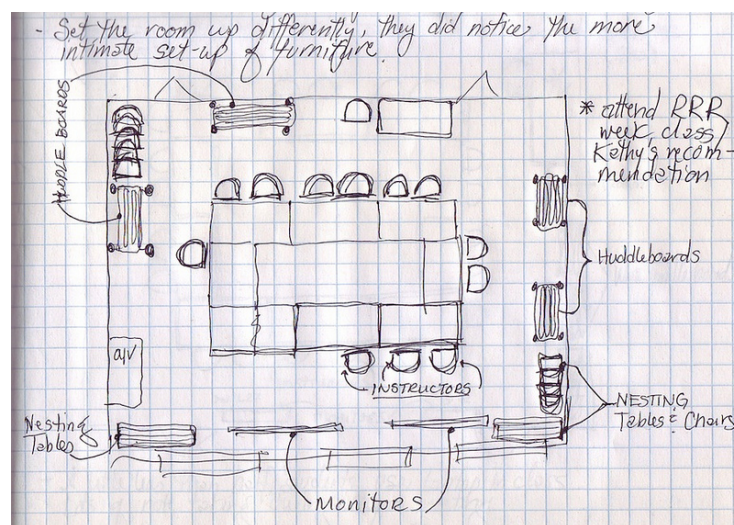 - Set the room up differently, they did notice the more
intimate set-up of furniture.
HUDDLE BOARDS
* attend RRR
week class,
Kathy's recom-
mendation
Huddleboards
a/v
INSTRUCTORS
Nesting
Tables
NESTING
Tables & Chairs
MONITORS